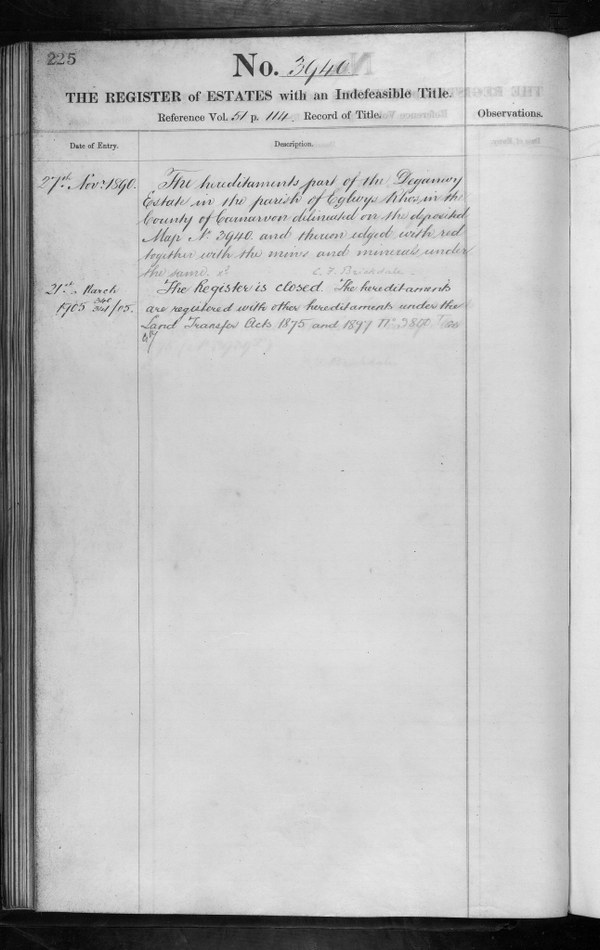 225
No. 3940
THE REGISTER of ESTATES with an Indefeasible Title.
Reference Vol. 51 p. 114 Record of Title.
Observations.
Date of Entry.
Description.
27th Nov. 1890.
The hereditaments part of the Deganwy
Estate in the parish of Eglwys Rhos in the
County of Carnarvon delineated on the deposited
Map No 3940 and thereon edged with red
together with the mines and minerals under
the same.
C. F. Brickdale
21st March
1905
The Register is closed. The hereditaments
are registered with other hereditaments under the
Land Transfer Acts 1875 and 1897 No